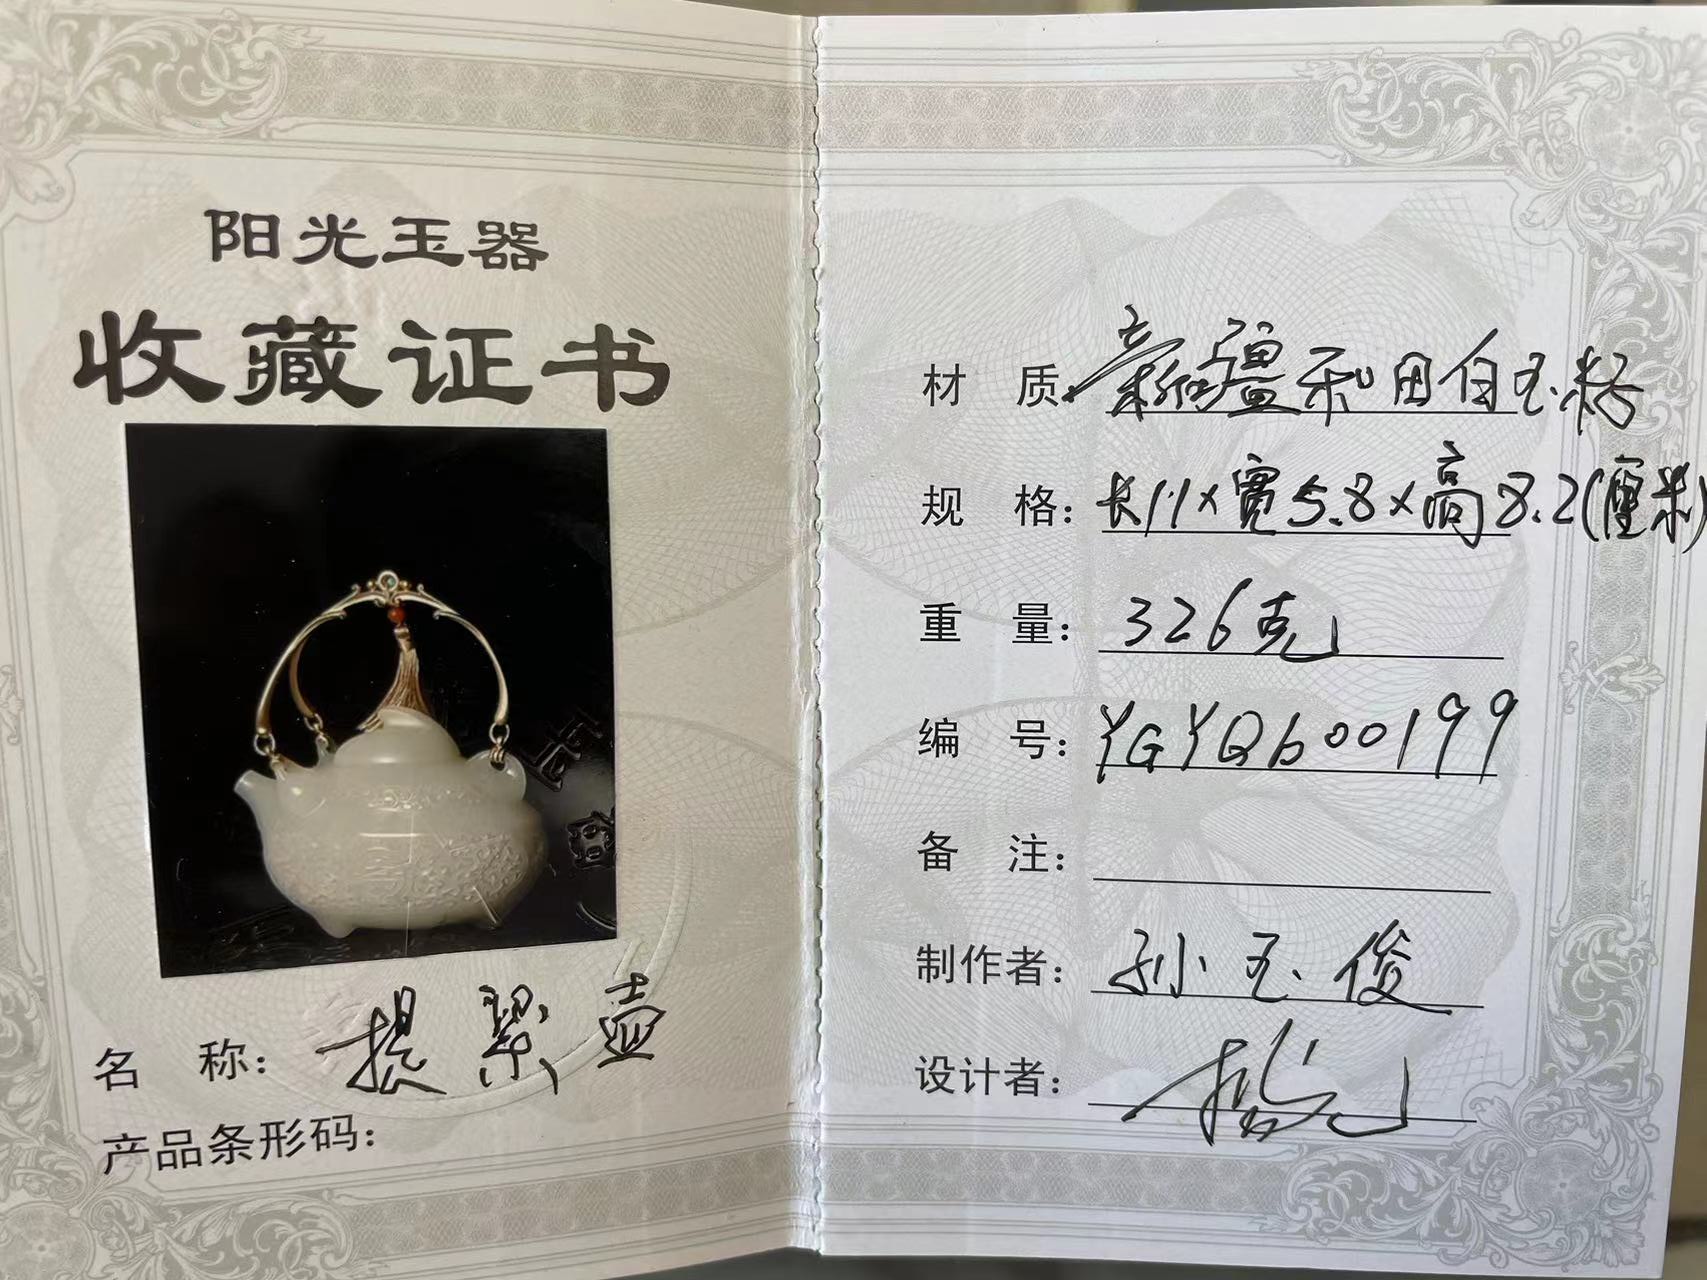 阳光玉器
收藏证书
名 称：提梁壶
产品条形码：
材 质：新疆和田白玉籽
规 格：长11×宽5.8×高8.2(厘米)
重 量：326克
编 号：YGYQb00199
备 注：
制作者：孙玉俊
设计者：